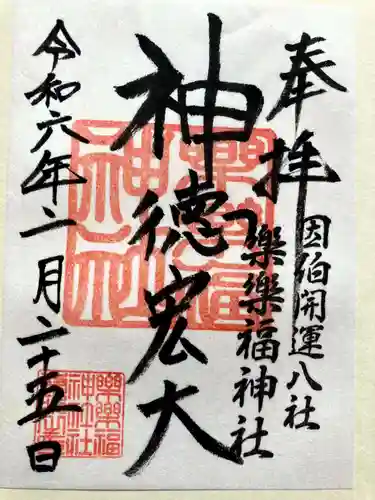 奉拝
因伯開運八社
樂樂福神社
神德宏大
令和六年二月二十五日
樂樂福神社